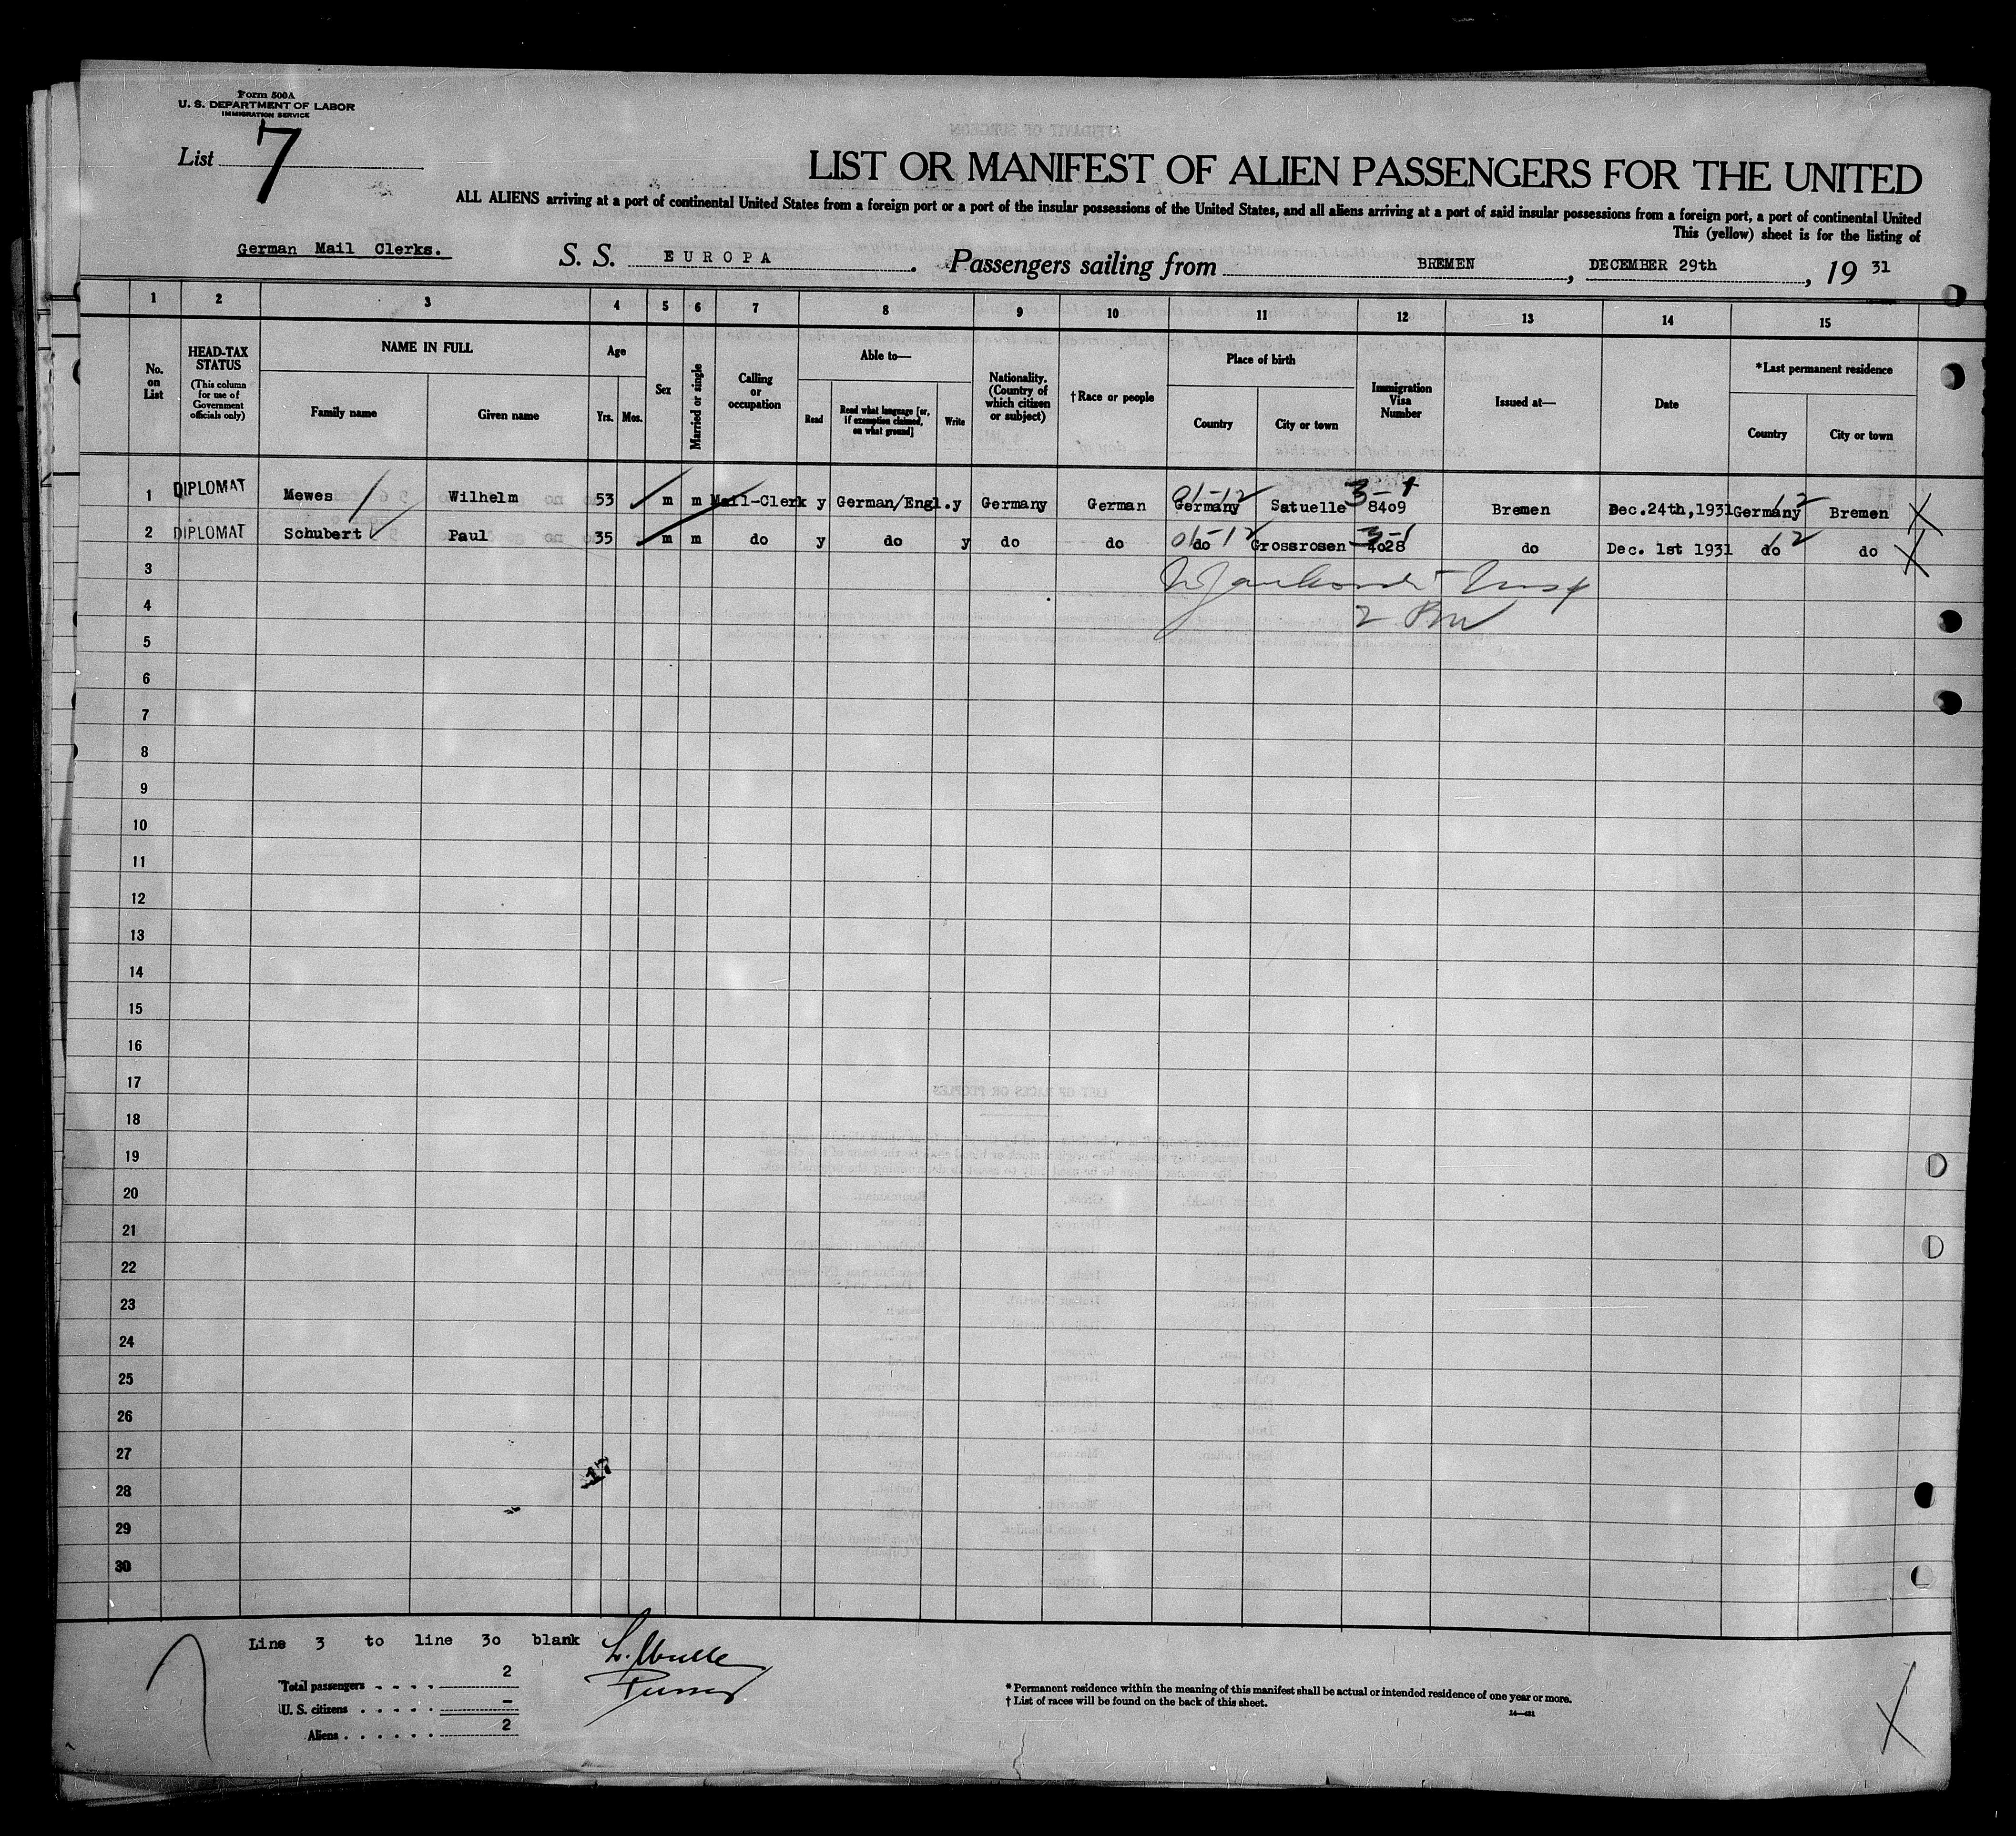 Form 500A
U. S. DEPARTMENT OF LABOR
IMMIGRATION SERVICE
List 7
LIST OR MANIFEST OF ALIEN PASSENGERS FOR THE UNITED
ALL ALIENS arriving at a port of continental United States from a foreign port or a port of the insular possessions of the United States, and all aliens arriving at a port of said insular possessions from a foreign port, a port of continental United
This (yellow) sheet is for the listing of
German Mail Clerks. S. S. EUROPA. Passengers sailing from BREMEN, DECEMBER 29th, 19 31
1 2 3 4 5 6 7 8 9 10 11 12 13 14 15
No. on List
HEAD-TAX STATUS (This column for use of Government officials only)
NAME IN FULL
Family name Given name
Age
Yrs. Mos.
Sex
Married or single
Calling or occupation
Able to—
Read Read what language [or, if exemption claimed, on what ground] Write
Nationality. (Country of which citizen or subject)
†Race or people
Place of birth
Country City or town
Immigration Visa Number
Issued at—
Date
*Last permanent residence
Country City or town
1 DIPLOMAT Mewes Wilhelm 53 m m Mail-Clerk y German/Engl. y Germany German 01-12 Germany Satuelle 3-1 8409 Bremen Dec.24th,1931 Germany 12 Bremen X
2 DIPLOMAT Schubert Paul 35 m m do y do y do do 01-12 do Grossrosen 3-1 4028 do Dec. 1st 1931 do 12 do X
3
4
5
6
7
8
9
10
11
12
13
14
15
16
17
18
19
20
21
22
23
24
25
26
27
28
29
30
17
Line 3 to line 30 blank
Total passengers . . . . 2
U. S. citizens . . . . . –
Aliens . . . . . . 2
Purser
* Permanent residence within the meaning of this manifest shall be actual or intended residence of one year or more.
† List of races will be found on the back of this sheet.
14—421
X